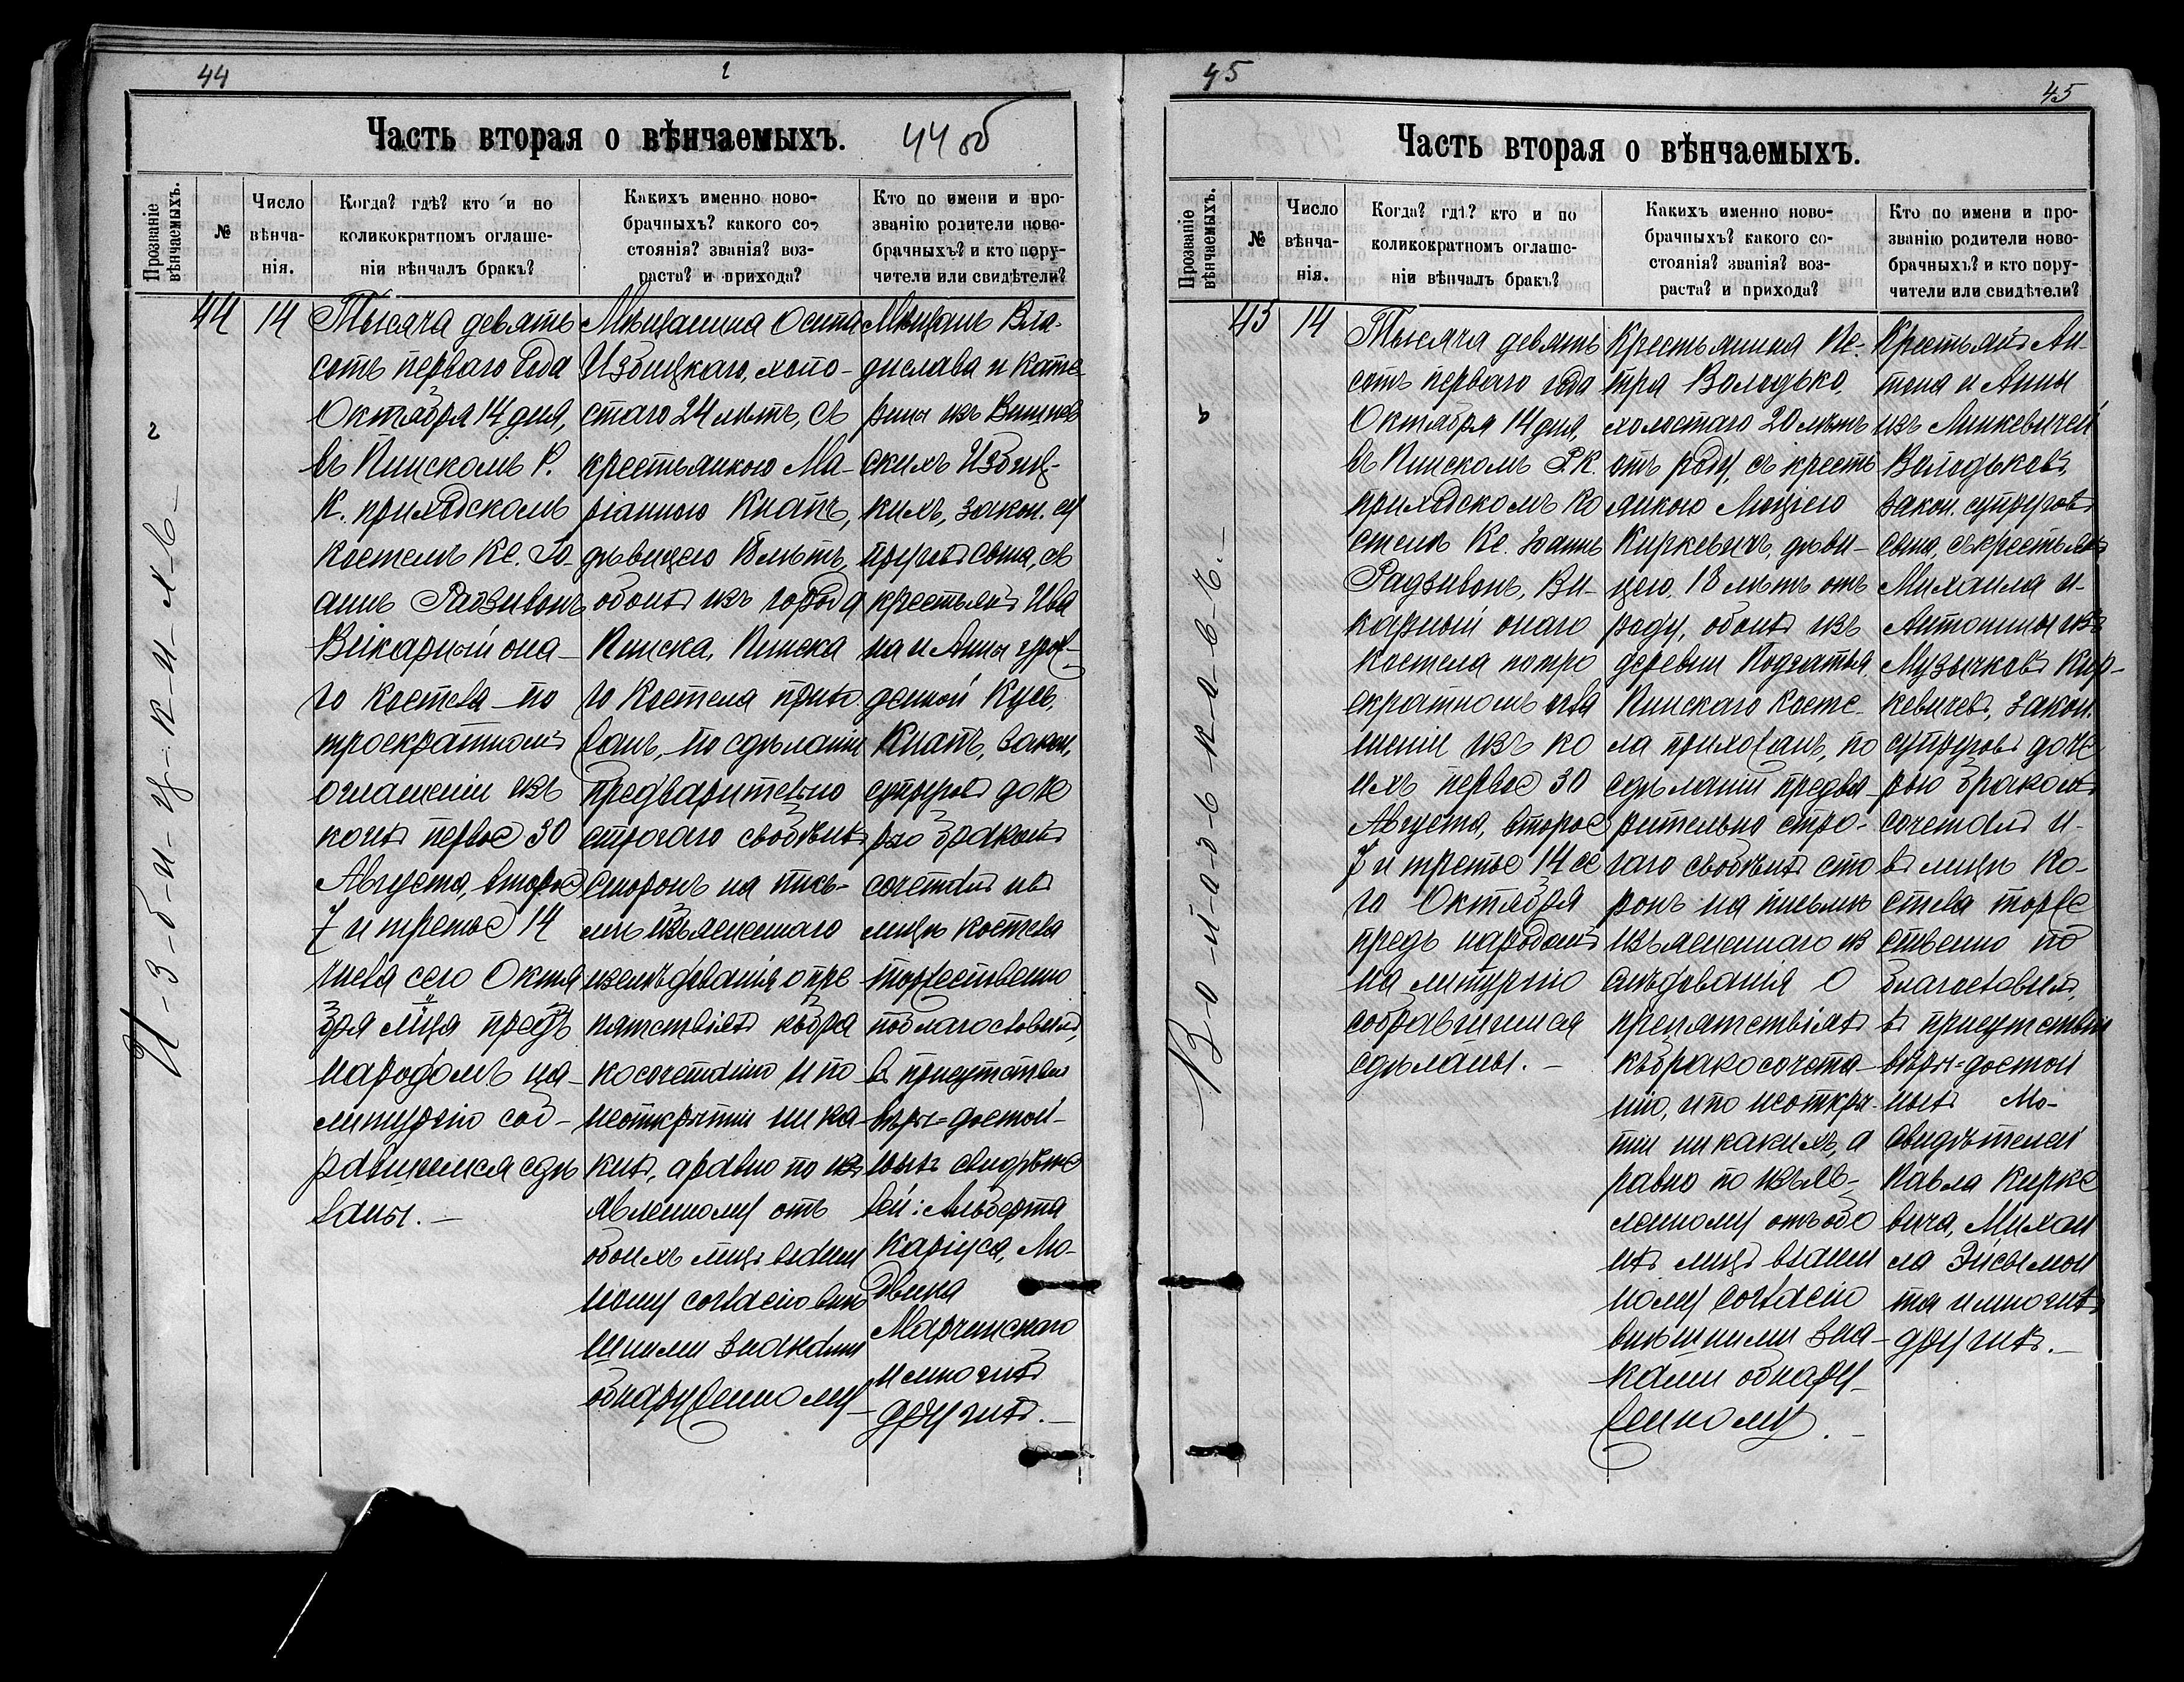 44
44 об
Часть вторая о вѣнчаемыхъ.
Прозваніе вѣнчаемыхъ.
№
Число вѣнча-
нія.
Когда? гдѣ? кто и по
коликократномъ оглаше-
ніи вѣнчалъ бракъ?
Какихъ именно ново-
брачныхъ? какого со-
стоянія? званія? воз-
раста? и прихода?
Кто по имени и про-
званію родители ново-
брачныхъ? и кто пору-
чители или свидѣтели?
И-з-б-и-ц-к-и-х-ъ-
44
14
Тысяча девять
сотъ перваго года
Октября 14 дня,
въ Пинскомъ Р.
К. приходскомъ
костелѣ Кс. Іо-
аннъ Радзивонъ
Викарный она-
го костела по
троекратномъ
оглашеніи изъ
коихъ первое 30
Августа, второе
7 и третье 14
числа сего Октя
бря м-ця предъ
народомъ на-
литургію соб-
равшемся сдѣ
ланы. —
Мѣщанина Осипа
Избицкаго, холо-
стаго 24 лѣтъ, съ
крестьянкою Ма-
ріанною Кнапъ,
дѣвицею лѣтъ,
обоихъ изъ города
Пинска, Пинска
го Костела прихо
жанъ, по сдѣланіи
предварительно
строгаго с обоихъ
сторонъ на пись-
мѣ изъясненнаго
изслѣдованія о пре
пятствіяхъ къ бра
косочетанію и по
неоткрытіи ника-
кихъ, а равно по изъ
явленному отъ
обоихъ лицъ взаим
ному согласію внѣ
шними знаками
обнаруженному
Мѣщанъ Вла-
дислава и Кате
рины изъ
скихъ Избиц-
кихъ, закон. су
пруговъ сына, съ
крестьянъ Ива
на и Анны урож-
денной Кусь,
Кнапъ, закон.
супруговъ доче
рью бракомъ
сочеталъ и въ
лицѣ костела
торжественно
поблагословилъ,
въ присутствіи
вѣры-достой-
ныхъ свидѣте
лей: Альберта
Каріуса, Лю-
двика
Марчинскаго
и многихъ
другихъ. —
45
45
Часть вторая о вѣнчаемыхъ.
Прозваніе вѣнчаемыхъ.
№
Число вѣнча-
нія.
Когда? гдѣ? кто и по
коликократномъ оглаше-
ніи вѣнчалъ бракъ?
Какихъ именно ново-
брачныхъ? какого со-
стоянія? званія? воз-
раста? и прихода?
Кто по имени и про-
званію родители ново-
брачныхъ? и кто пору-
чители или свидѣтели?
45
14
Тысяча девять
сотъ перваго года
Октября 14 дня,
въ Пинскомъ Р. К.
приходскомъ ко
стелѣ Кс. Іоаннъ
Радзивонъ, Ви-
карный онаго
костела по тро
екратномъ огла
шеніи изъ ко
ихъ первое 30
Августа, второе
7 и третье 14 се
го Октября
предъ народомъ
на литургію
собравшимся
сдѣланы. —
Крестьянина Пе-
тра Володько,
холостаго 20 лѣтъ
отъ роду, съ кресть
янкою Люціею
Киркевичъ, дѣви-
цею 18 лѣтъ отъ
роду, обоихъ изъ
деревни Подгатья
Пинскаго Косте-
ла прихожанъ, по
сдѣланіи предва-
рительно стро-
гаго с обоихъ сто
ронъ на письмѣ
изъясненнаго из
слѣдованія о
препятствіяхъ
къ бракосочета-
нію, и по неоткры
тіи никакихъ, а
равно по изъяв-
ленному отъ обо
ихъ лицъ взаим
ному согласію
внѣшними зна-
ками обнару-
женному. —
Крестьянъ Ан-
тона и Анны
изъ Минкевичей
Володьковъ,
закон. супруговъ
сына, съ крестьянъ
Михаила и
Антонины изъ
Музычковъ Кир-
кевичей, закон.
супруговъ доче
рью бракомъ
сочеталъ и
въ лицѣ ко-
стела торже
ственно по
благословилъ,
въ присутствіи
вѣры-достой
ныхъ
свидѣтелей
Павла Кирке
вича, Михаи
ла Эйсымон
та и многихъ
другихъ. —